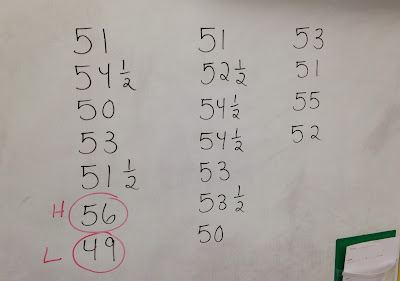 51
54 1/2
50
53
51 1/2
H 56
L 49
51
52 1/2
54 1/2
54 1/2
53
53 1/2
50
53
51
55
52